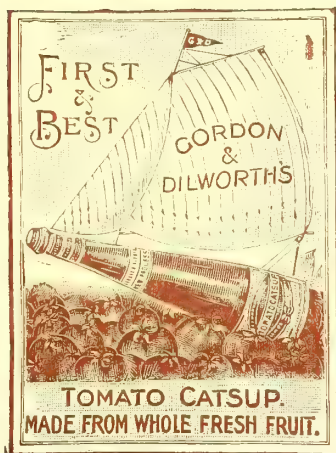 G&D
FIRST
&
BEST
GORDON
&
DILWORTH'S
TOMATO CATSUP.
MADE FROM WHOLE FRESH FRUIT.